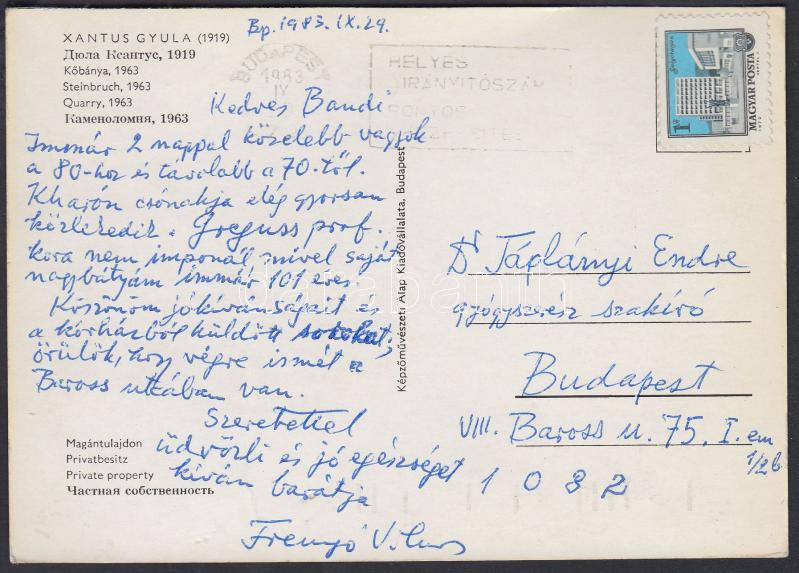 XANTUS GYULA (1919)
Дюла Ксантус, 1919
Kőbánya, 1963
Steinbruch, 1963
Quarry, 1963
Каменоломня, 1963
Bp. 1983. IX. 29.
BUDAPEST
1983
IX
HELYES
IRÁNYÍTÓSZÁM
PONTOS
1 Ft
MAGYAR POSTA
Kedves Bandi
Immár 2 nappal közelebb vagyok
a 80-hoz és távolabb a 70-től.
Kharón csónakja elég gyorsan
közlekedik. Greguss prof.
kora nem imponál mivel saját
nagybátyám immár 101 éves.
Köszönöm jókívánságait és
a kórházból küldött sorokat;
örülök, hogy végre ismét a
Baross utcában van.
Szeretettel
üdvözli és jó egészséget
kíván barátja
Frenyó Vilmos
Képzőművészeti Alap Kiadóvállalata, Budapest
Dr Táplányi Endre
gyógyszerész szakíró
Budapest
VIII. Baross u. 75. I. em
1/2b
1 0 8 2
Magántulajdon
Privatbesitz
Private property
Частная собственность
databanih